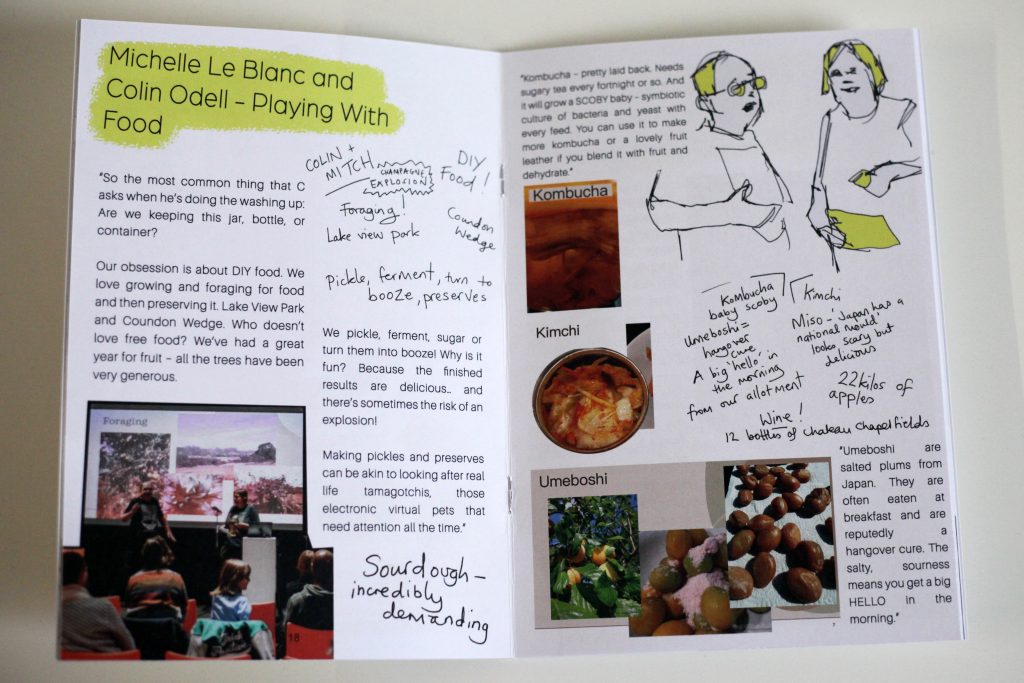 Michelle Le Blanc and
Colin Odell - Playing With
Food
"So the most common thing that C
asks when he's doing the washing up:
Are we keeping this jar, bottle, or
container?
Our obsession is about DIY food. We
love growing and foraging for food
and then preserving it. Lake View Park
and Coundon Wedge. Who doesn't
love free food? We've had a great
year for fruit – all the trees have been
very generous.
Foraging
18
COLIN +
MITCH
CHAMPAGNE
EXPLOSION
DIY
Food!
Foraging!
Lake view park
Coundon
Wedge
Pickle, ferment, turn to
booze, preserves
We pickle, ferment, sugar or
turn them into booze! Why is it
fun? Because the finished
results are delicious.. and
there's sometimes the risk of an
explosion!
Making pickles and preserves
can be akin to looking after real
life tamagotchis, those
electronic virtual pets that
need attention all the time."
Sourdough –
incredibly
demanding
"Kombucha - pretty laid back. Needs
sugary tea every fortnight or so. And
it will grow a SCOBY baby - symbiotic
culture of bacteria and yeast with
every feed. You can use it to make
more kombucha or a lovely fruit
leather if you blend it with fruit and
dehydrate."
Kombucha
Kimchi
Kombucha
baby scoby
Umeboshi =
hangover
cure
A big 'hello' in
the morning
from our allotment
Kimchi
Miso - 'Japan has a
national mould'
looks scary but
delicious
22 kilos of
apples
Wine!
12 bottles of chateau chapelfields
Umeboshi
"Umeboshi are
salted plums from
Japan. They are
often eaten at
breakfast and are
reputedly a
hangover cure. The
salty, sourness
means you get a big
HELLO in the
morning."